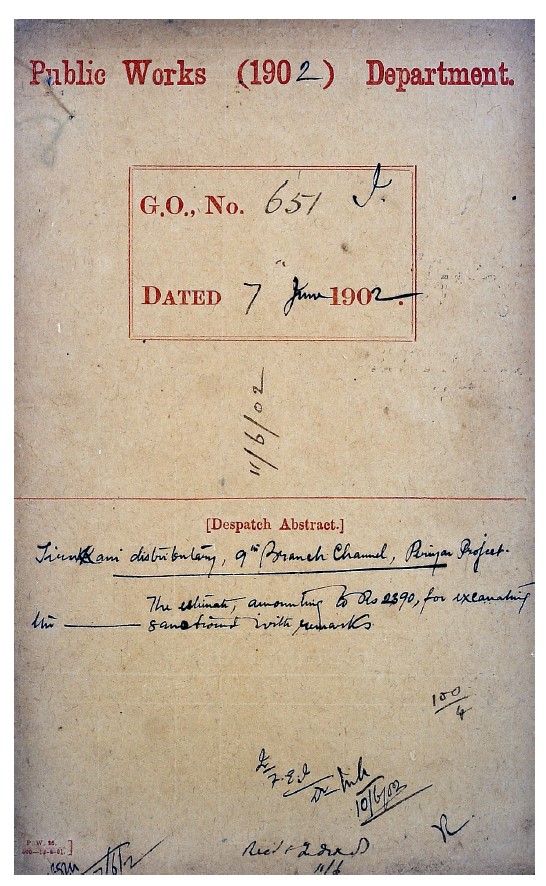 Public Works (1902) Department.
G.O., No. 651 I.
DATED 7 June 1902.
11/6/02
[Despatch Abstract.]
distributary, 9th Branch Channel, Periyar Project.
The estimate, amounting to Rs 2390, for excavating
the — sanctioned with remarks.
100/4
10/6/02
11/6
P.W. 26.